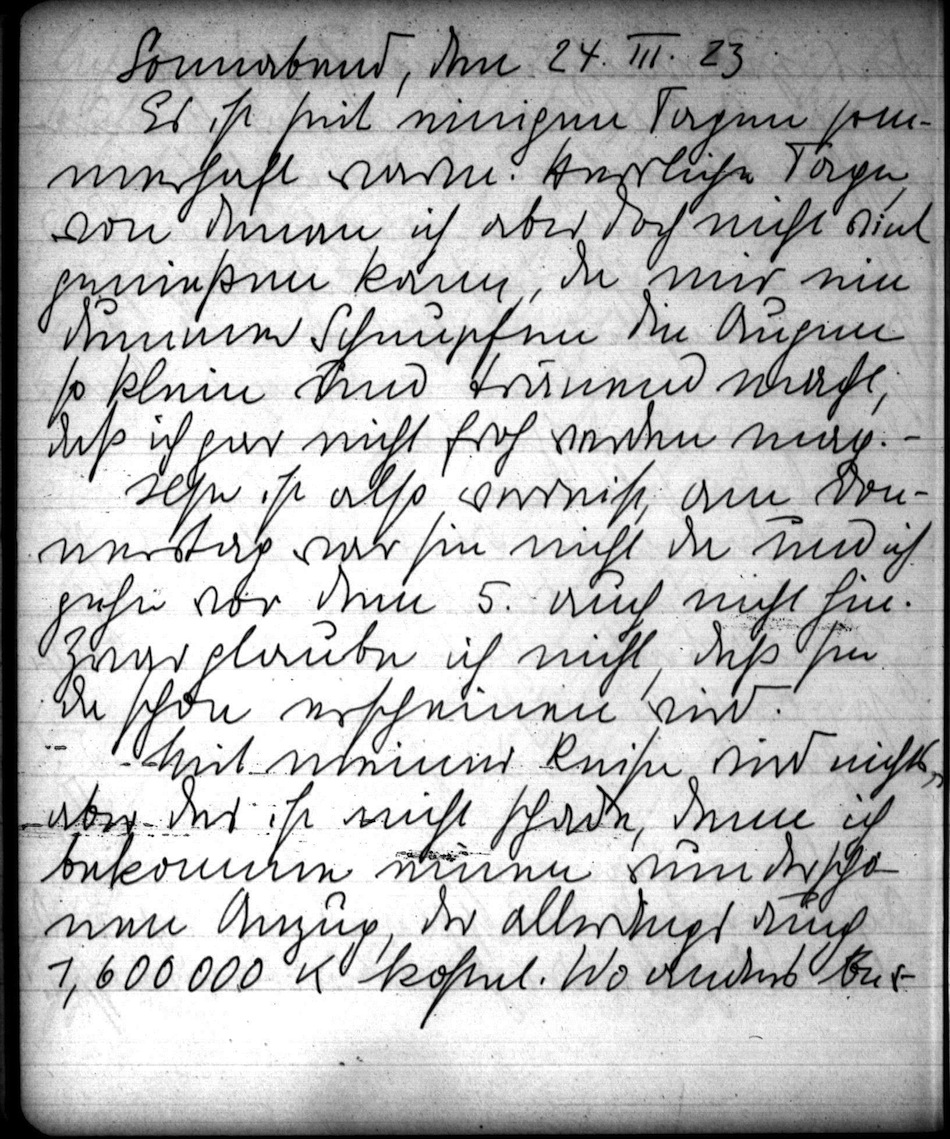 Sonnabend, den 24. III. 23
Es ist seit einigen Tagen som-
merhaft warm. Herrliche Tage,
von denen ich aber doch nicht viel
genießen kann, da mir ein
dummer Schnupfen die Augen
so klein und tränend macht,
daß ich gar nicht froh werden mag. -
ist also verreist, am Don-
nerstag war sie nicht da und ich
gehe vor dem 5. auch nicht hin.
Zwar glaube ich nicht, daß sie
da schon erscheinen wird.
- Mit meiner Reise wird nichts,
aber das ist nicht schade, denn ich
bekomme einen wunderschö-
nen Anzug, der allerdings auch
1,600 000 K kostet. Wo anders